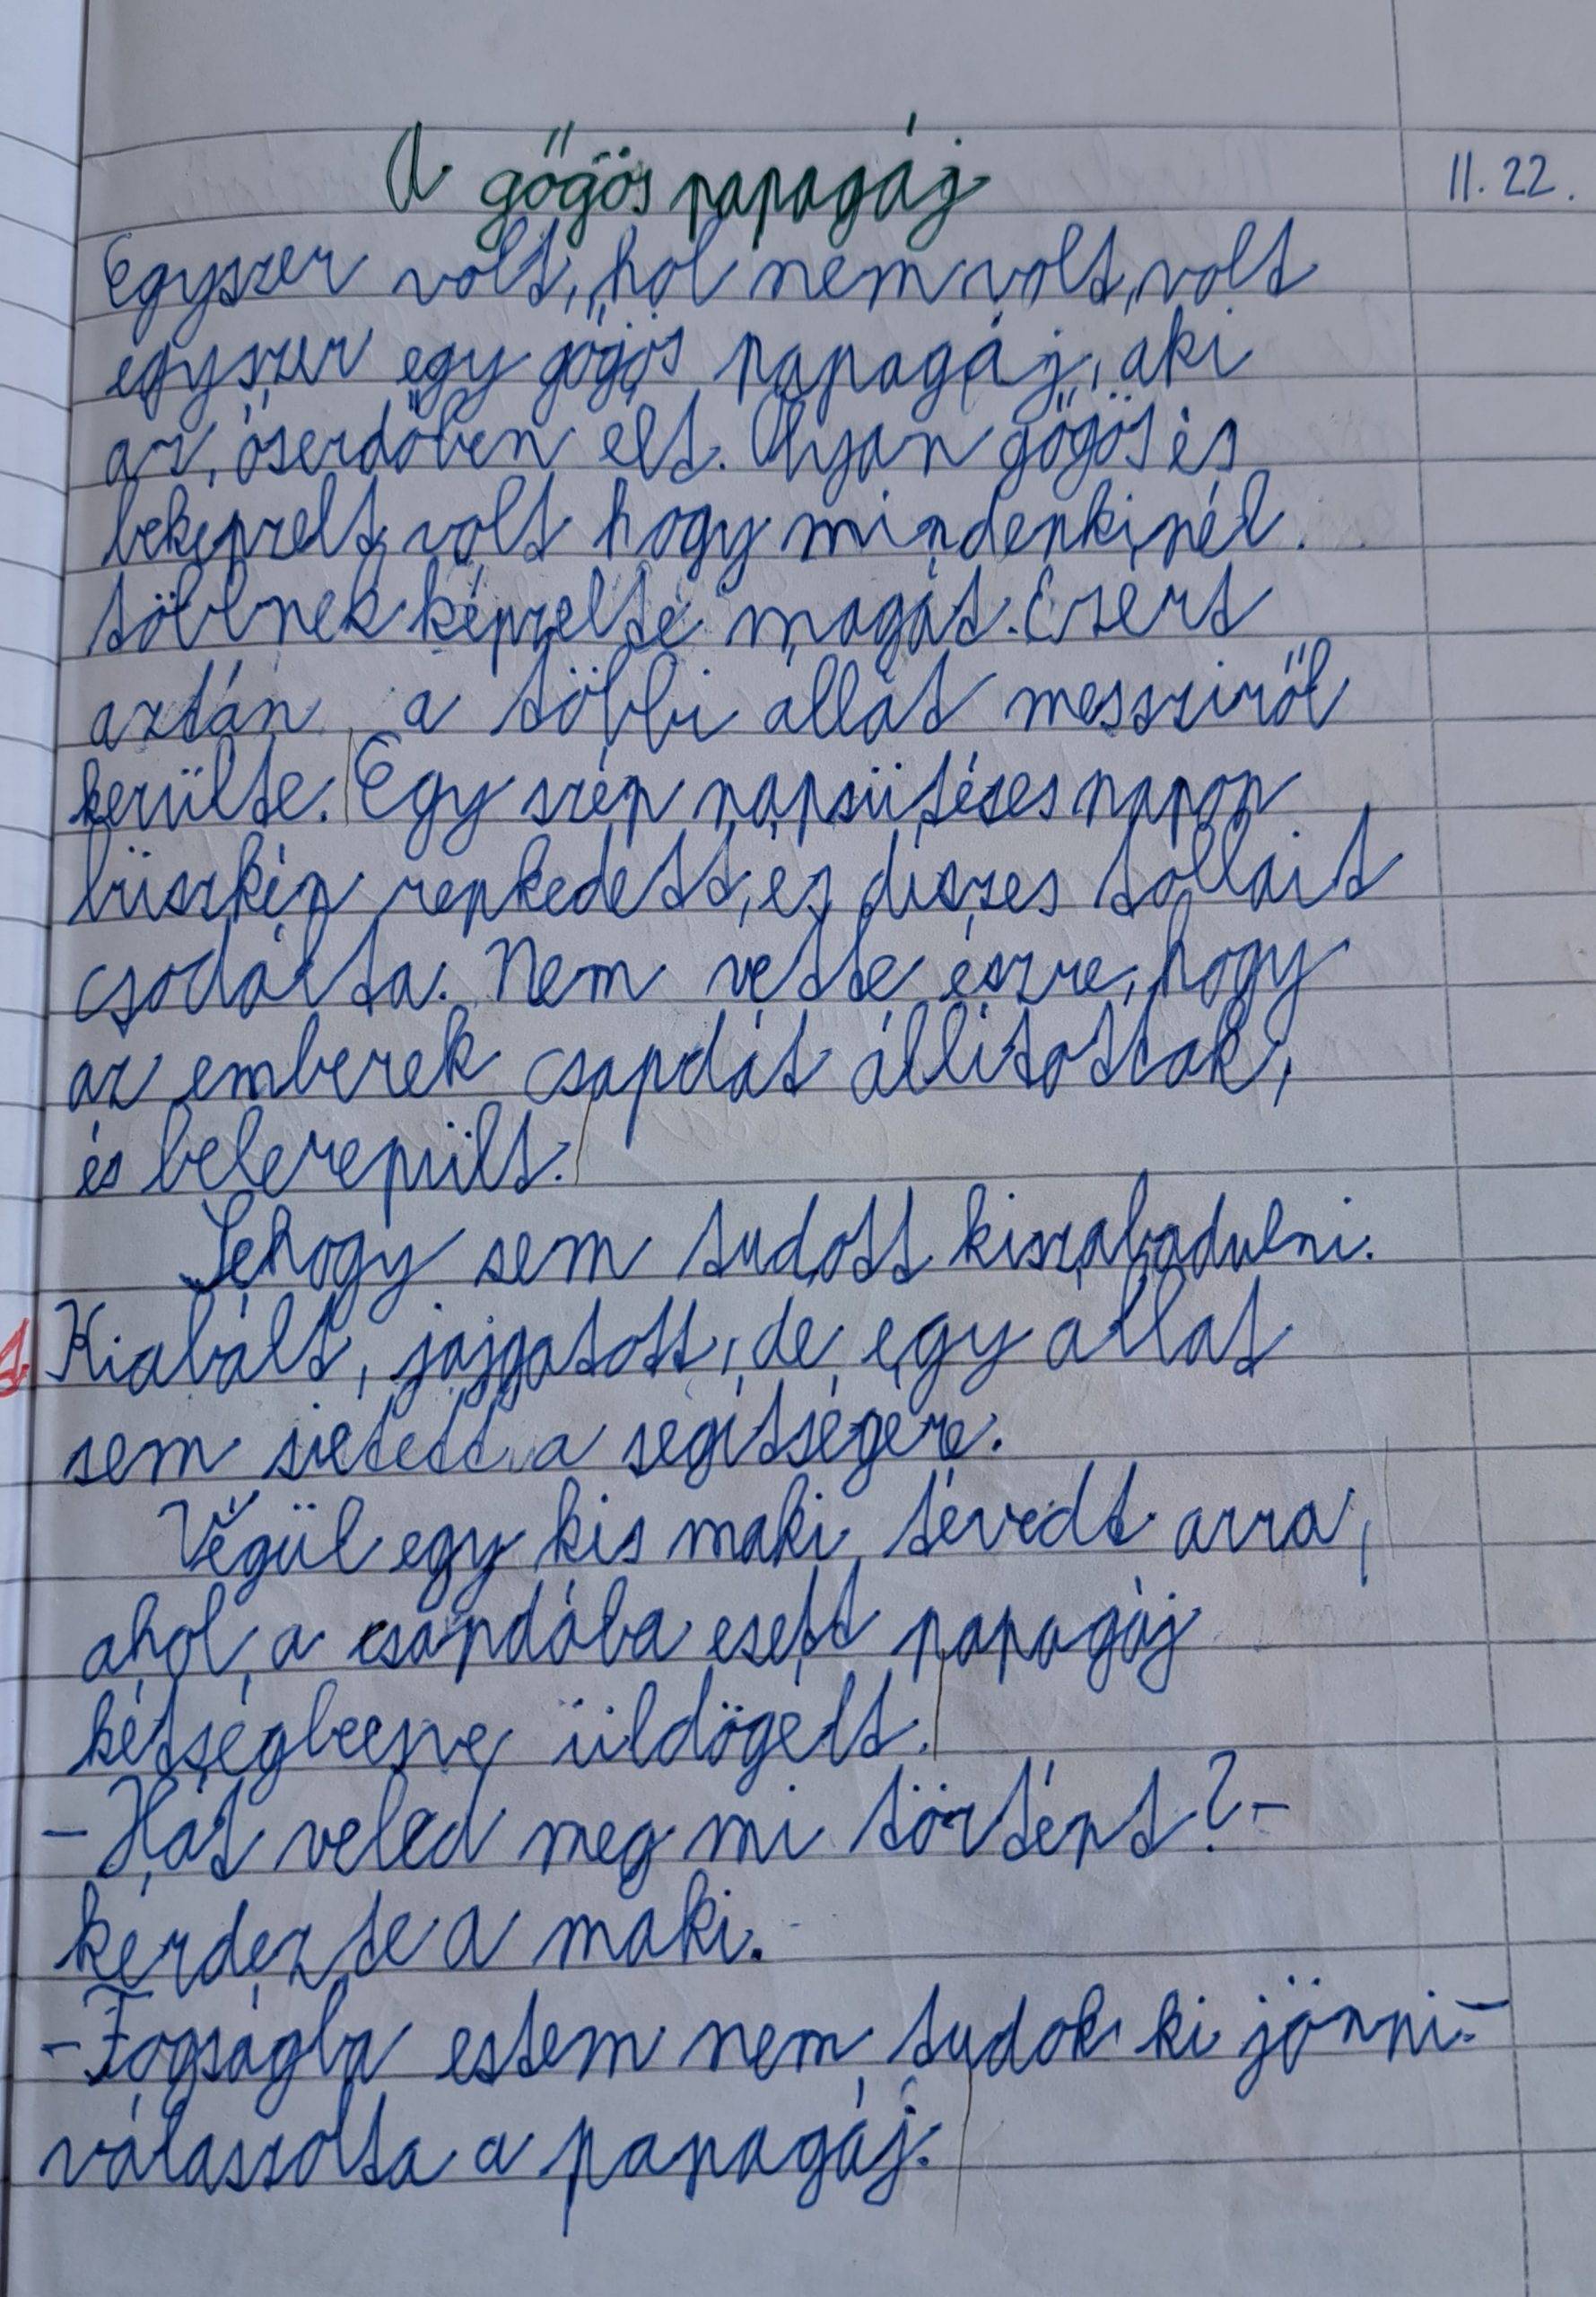 A gőgös papagáj
11. 22.
Egyszer volt, hol nem volt, volt
egyszer egy gőgös papagáj, aki
az őserdőben élt. Olyan gőgös és
beképzelt volt hogy mindenkinél
többnek képzelte magát. Ezért
aztán a többi állat messziről
kerülte. Egy szép napsütéses napon
büszkén repkedett, és díszes tollait
csodálta. Nem vette észre, hogy
az emberek csapdát állítottak,
és belerepült.
Sehogy sem tudott kiszabadulni.
Kiabált, jajgatott, de egy állat
sem sietett a segítségére.
Végül egy kis maki tévedt arra,
ahol a csapdába esett papagáj
kétségbeesve üldögélt.
- Hát veled meg mi történt? -
kérdezte a maki.
- Fogságba estem nem tudok ki jönni. -
válaszolta a papagáj.